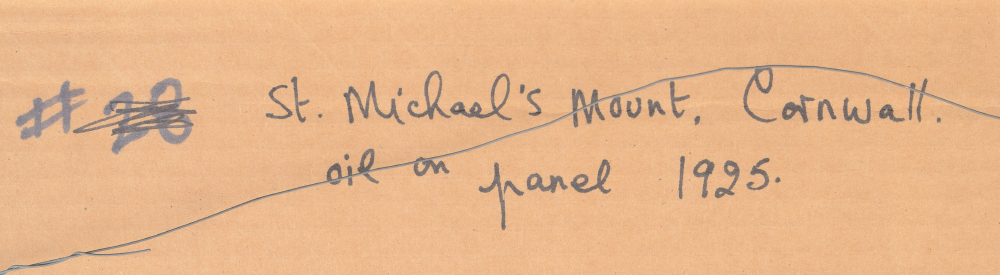 # St. Michael's Mount, Cornwall.
oil on panel 1925.